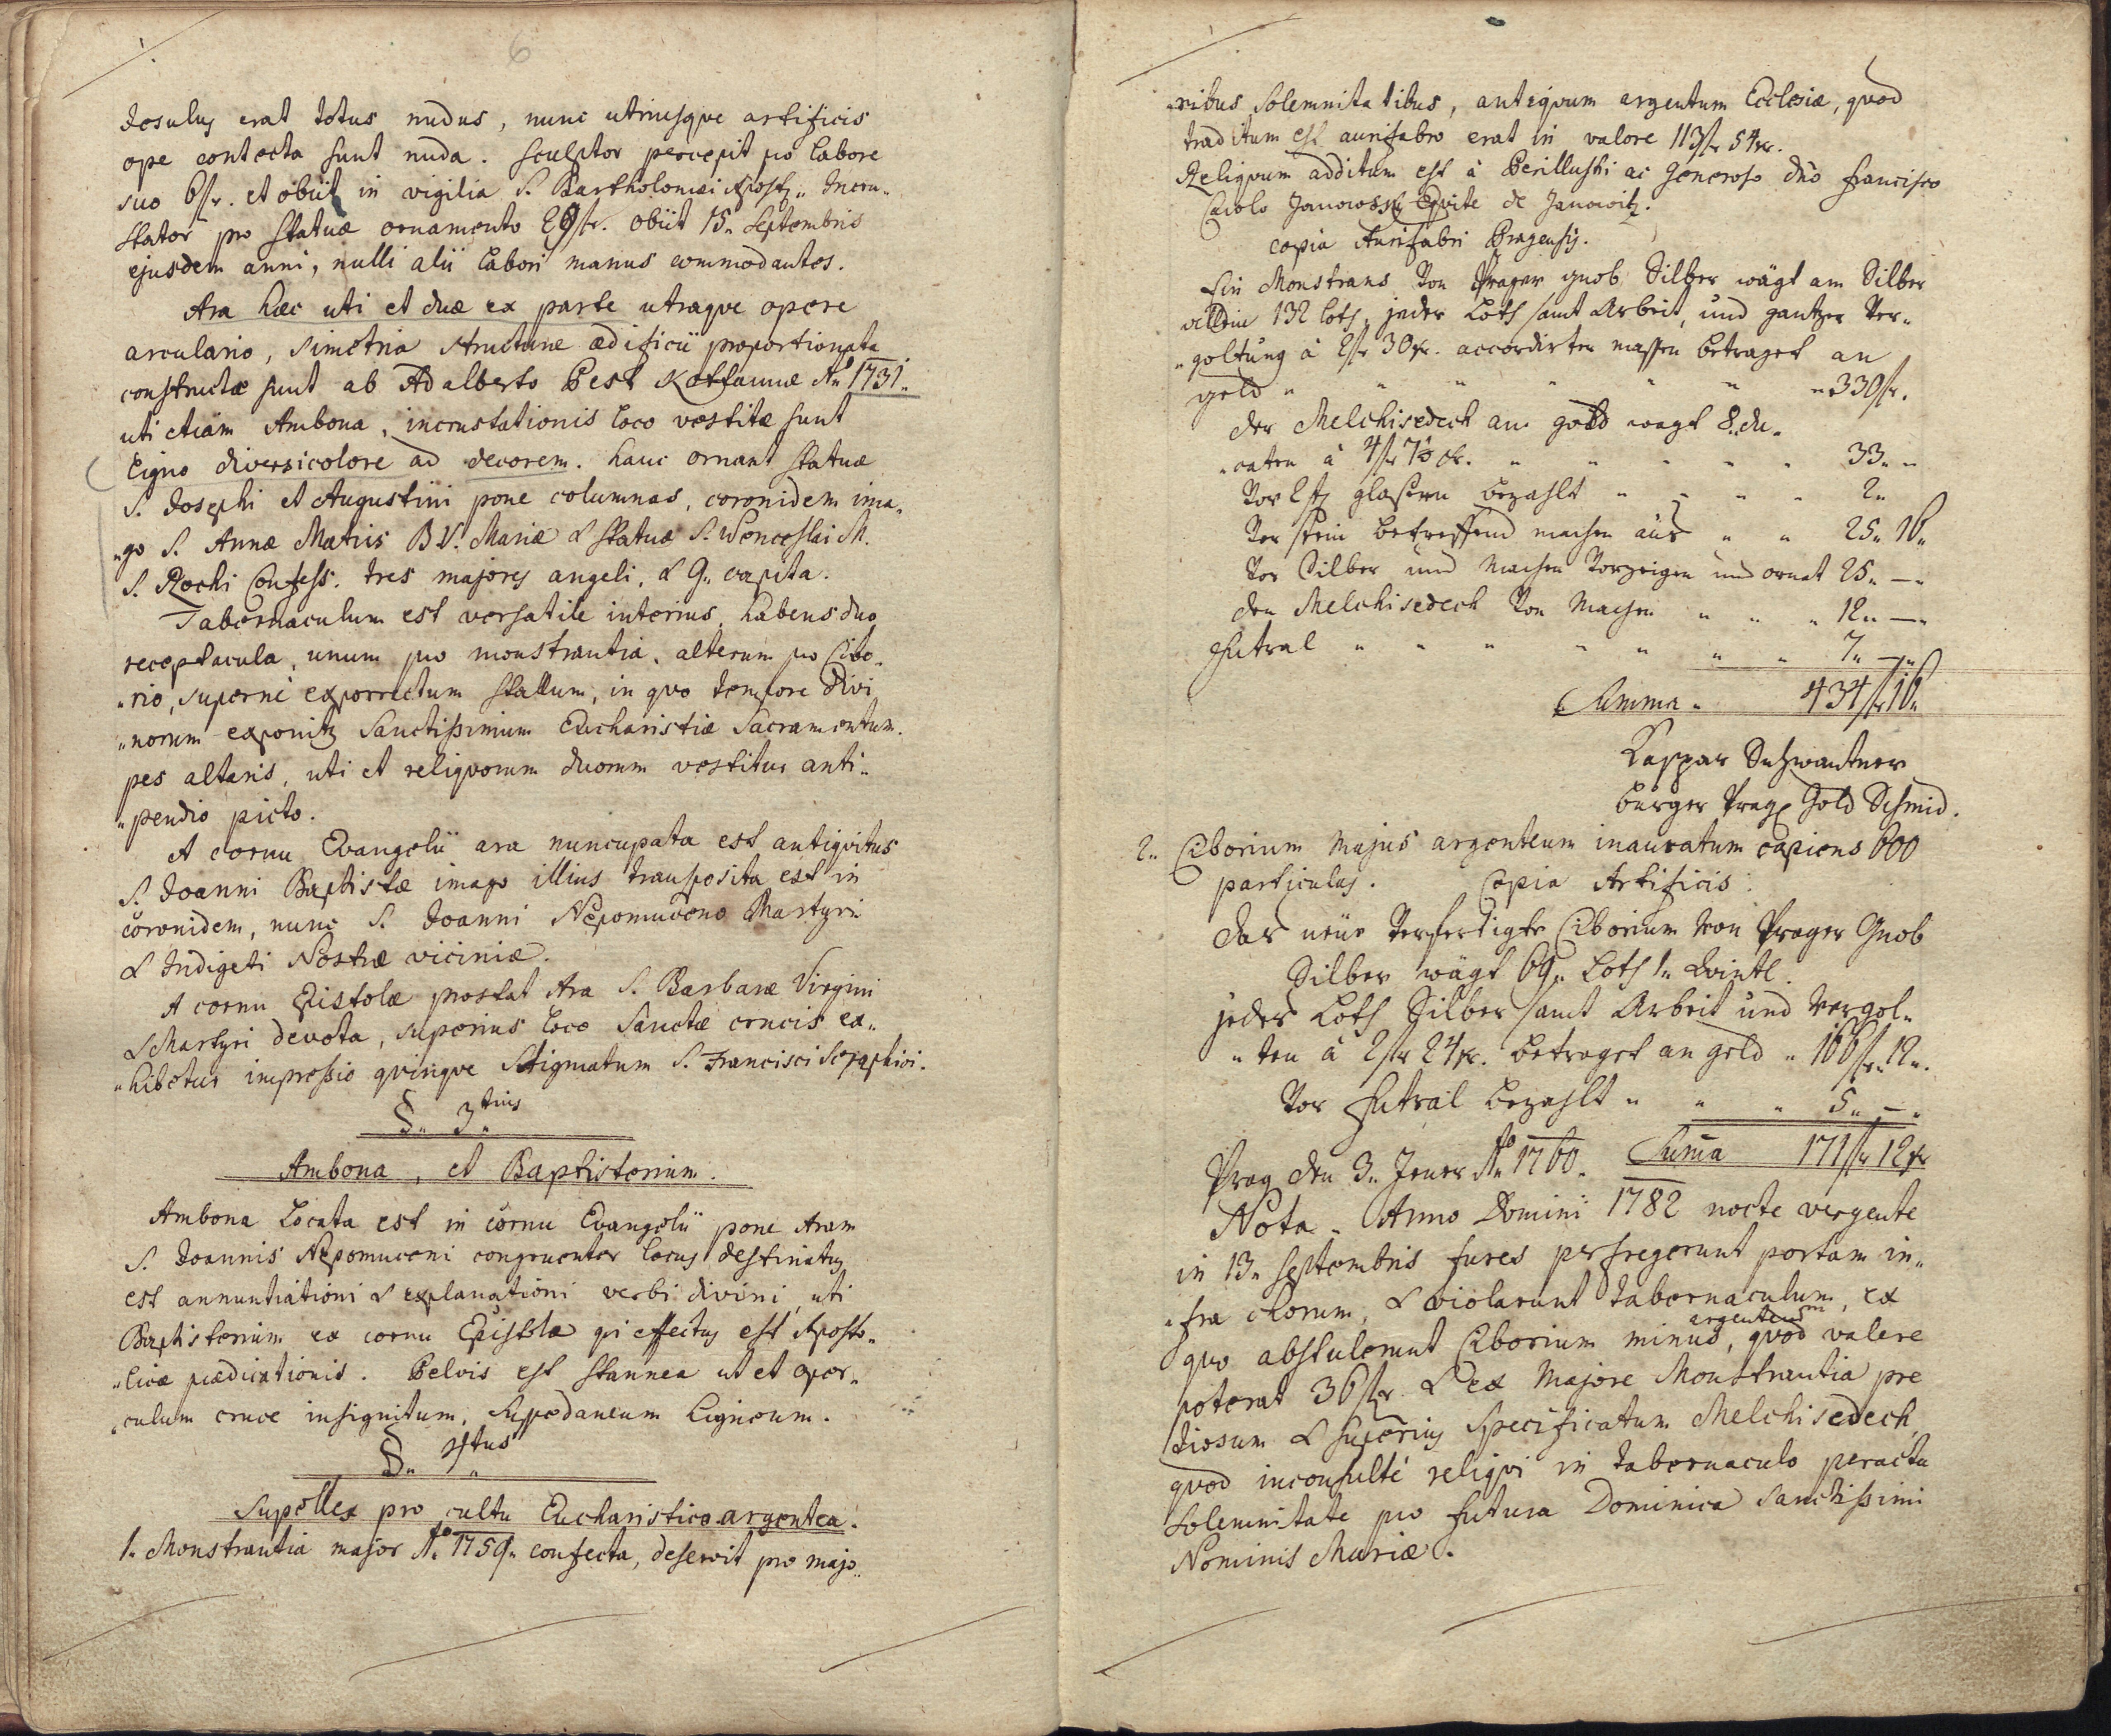 6
Jesulus erat totus nudus, nunc utriusque artificis
ope contecta sunt nuda. Sculptor percepit pro labore
suo 6 fr. et obiit in vigilia S. Bartholomæi Apostoli. Incru„
stator pro statuæ ornamento 29 fr. obiit 15„ Septembris
ejusdem anni, nulli alii labori manus commodantes.
Ara hæc uti et duæ ex parte utraque opere
arculario, simetria structuræ ædificii proportionata
constructæ sunt ab Adalberto Pest Kottaunæ Aº 1731„
uti etiam Ambona, incrustationis loco vestitæ sunt
ligno diversicolore ad decorem. hanc ornant statuæ
S. Josephi et Augustini pone columnas, coronidem ima„
„go S. Annæ Matris B.V. Mariæ & statuæ S. Wenceslai M.
S. Rochi Confess. tres majores angeli, & 9„ capita.
Tabernaculum est versatile interius, habens duo
receptacula, unum pro monstrantia, alterum pro Cibo„
„rio, supernè exporrectum stallum, in quo tempore Divi„
„norum exponitur Sanctissimum Eucharistiæ Sacramentum.
pes altaris, uti et reliquorum duorum vestitur anti„
„pendio picto.
A cornu Evangelii ara nuncupata est antiquitus
S. Joanni Baptistæ imago illius transposita est in
coronidem, nunc S. Joanni Nepomuceno Martyri
& Indigeti Nostræ viciniæ.
A cornu Epistolæ prostat Ara S. Barbaræ Virgini
& Martyri devota, superius loco Sanctæ crucis ex„
„hibetur impressio quinque Stigmatum S. Francisci Seraphici.
§„ 3„tius
Ambona, et Baptisterium.
Ambona Locata est in cornu Evangelii pone Aram
S. Joannis Nepomuceni congruenter locus destinatus
est annuntiationi & explanationi verbi divini, uti
Baptisterium ex cornu Epistolæ qui effectus est Aposto„
„licæ prædicationis. Pelvis est stannea ut et oper„
„culum cruce insignitum, supedaneum ligneum.
§„ 4„tus
Supellex pro cultu Eucharistico argentea.
1„ Monstrantia major Aº 1759„ confecta, deservit pro majo„
„ribus solemnitatibus, antiquum argentum Ecclesiæ, quod
traditum est aurifabro erat in valore 113 fr 54 xr.
Reliquum additum est à Perillustri ac Generoso dño Francisco
Carolo Janowsky Equite de Janowitz.
copia Aurifabri Pragensis.
Ein Monstrans von Prager Prob Silber wägt am Silber
allein 132 Loth, jeder Loth samt Arbeit, und gantzer Ver„
„goltung à 2 fr 30 xr. accordirter massen betraget an
geld „ „ „ „ „ „ „ 330 fr.
der Melchisedech am gold wägt 8„ du„
„caten à 4 fr 7½ xr. „ „ „ „ „ 33„ „
Vor 2 St glaßern bezahlt „ „ „ „ 2„
Der stein betreffend machen aus „ „ 25„ 16„
Vor Silber und Machen Vorzeigen und ornat 25„ —„
den Melchisedech Von Machen „ „ „ 12„ —„
Futral „ „ „ „ „ „ „ 7„ —„
Summa „ 434 fr 16„
Caspar Schwantner
burger Prag. Gold Schmid.
2„ Ciborium majus argenteum inauratum capiens 600
particulas. Copia Artificis.
Das neue Verfertigte Ciborium von Prager Prob
Silber wägt 69„ Loth 1„ Quintl.
jeder Loth Silber samt Arbeit und Vergol„
„ten à 2 fr 24 xr. betraget an geld „ 166 fr. 12„.
Vor Futral bezahlt „ „ „ 5„ —„
Prag den 3„ Jener Aº 1760. Suma 171 fr 12 xr
Nota. Anno Domini 1782 nocte vergente
in 13„ Septembris fures perfregerunt portam in„
„fra chorum, & violarunt tabernaculum, ex
quo abstulerunt Ciborium minus, argenteum quod valere
poterat 36 fr. & ex Majore Monstrantia pre
tiosum & superius specificatum Melchisedech,
quod inconsultè reliqui in tabernaculo peracta
solemnitate pro futura Dominica Sanctissimi
Nominis Mariæ.